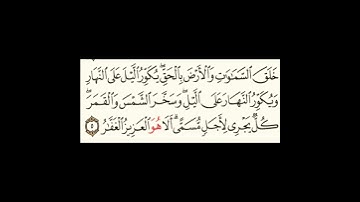 خَلَقَ السَّمَٰوَٰتِ وَالْأَرْضَ بِالْحَقِّ ۖ يُكَوِّرُ الَّيْلَ عَلَى النَّهَارِ
وَيُكَوِّرُ النَّهَارَ عَلَى الَّيْلِ ۖ وَسَخَّرَ الشَّمْسَ وَالْقَمَرَ ۖ
كُلٌّ يَجْرِى لِأَجَلٍ مُّسَمًّى ۗ أَلَا هُوَ الْعَزِيزُ الْغَفَّٰرُ ٥